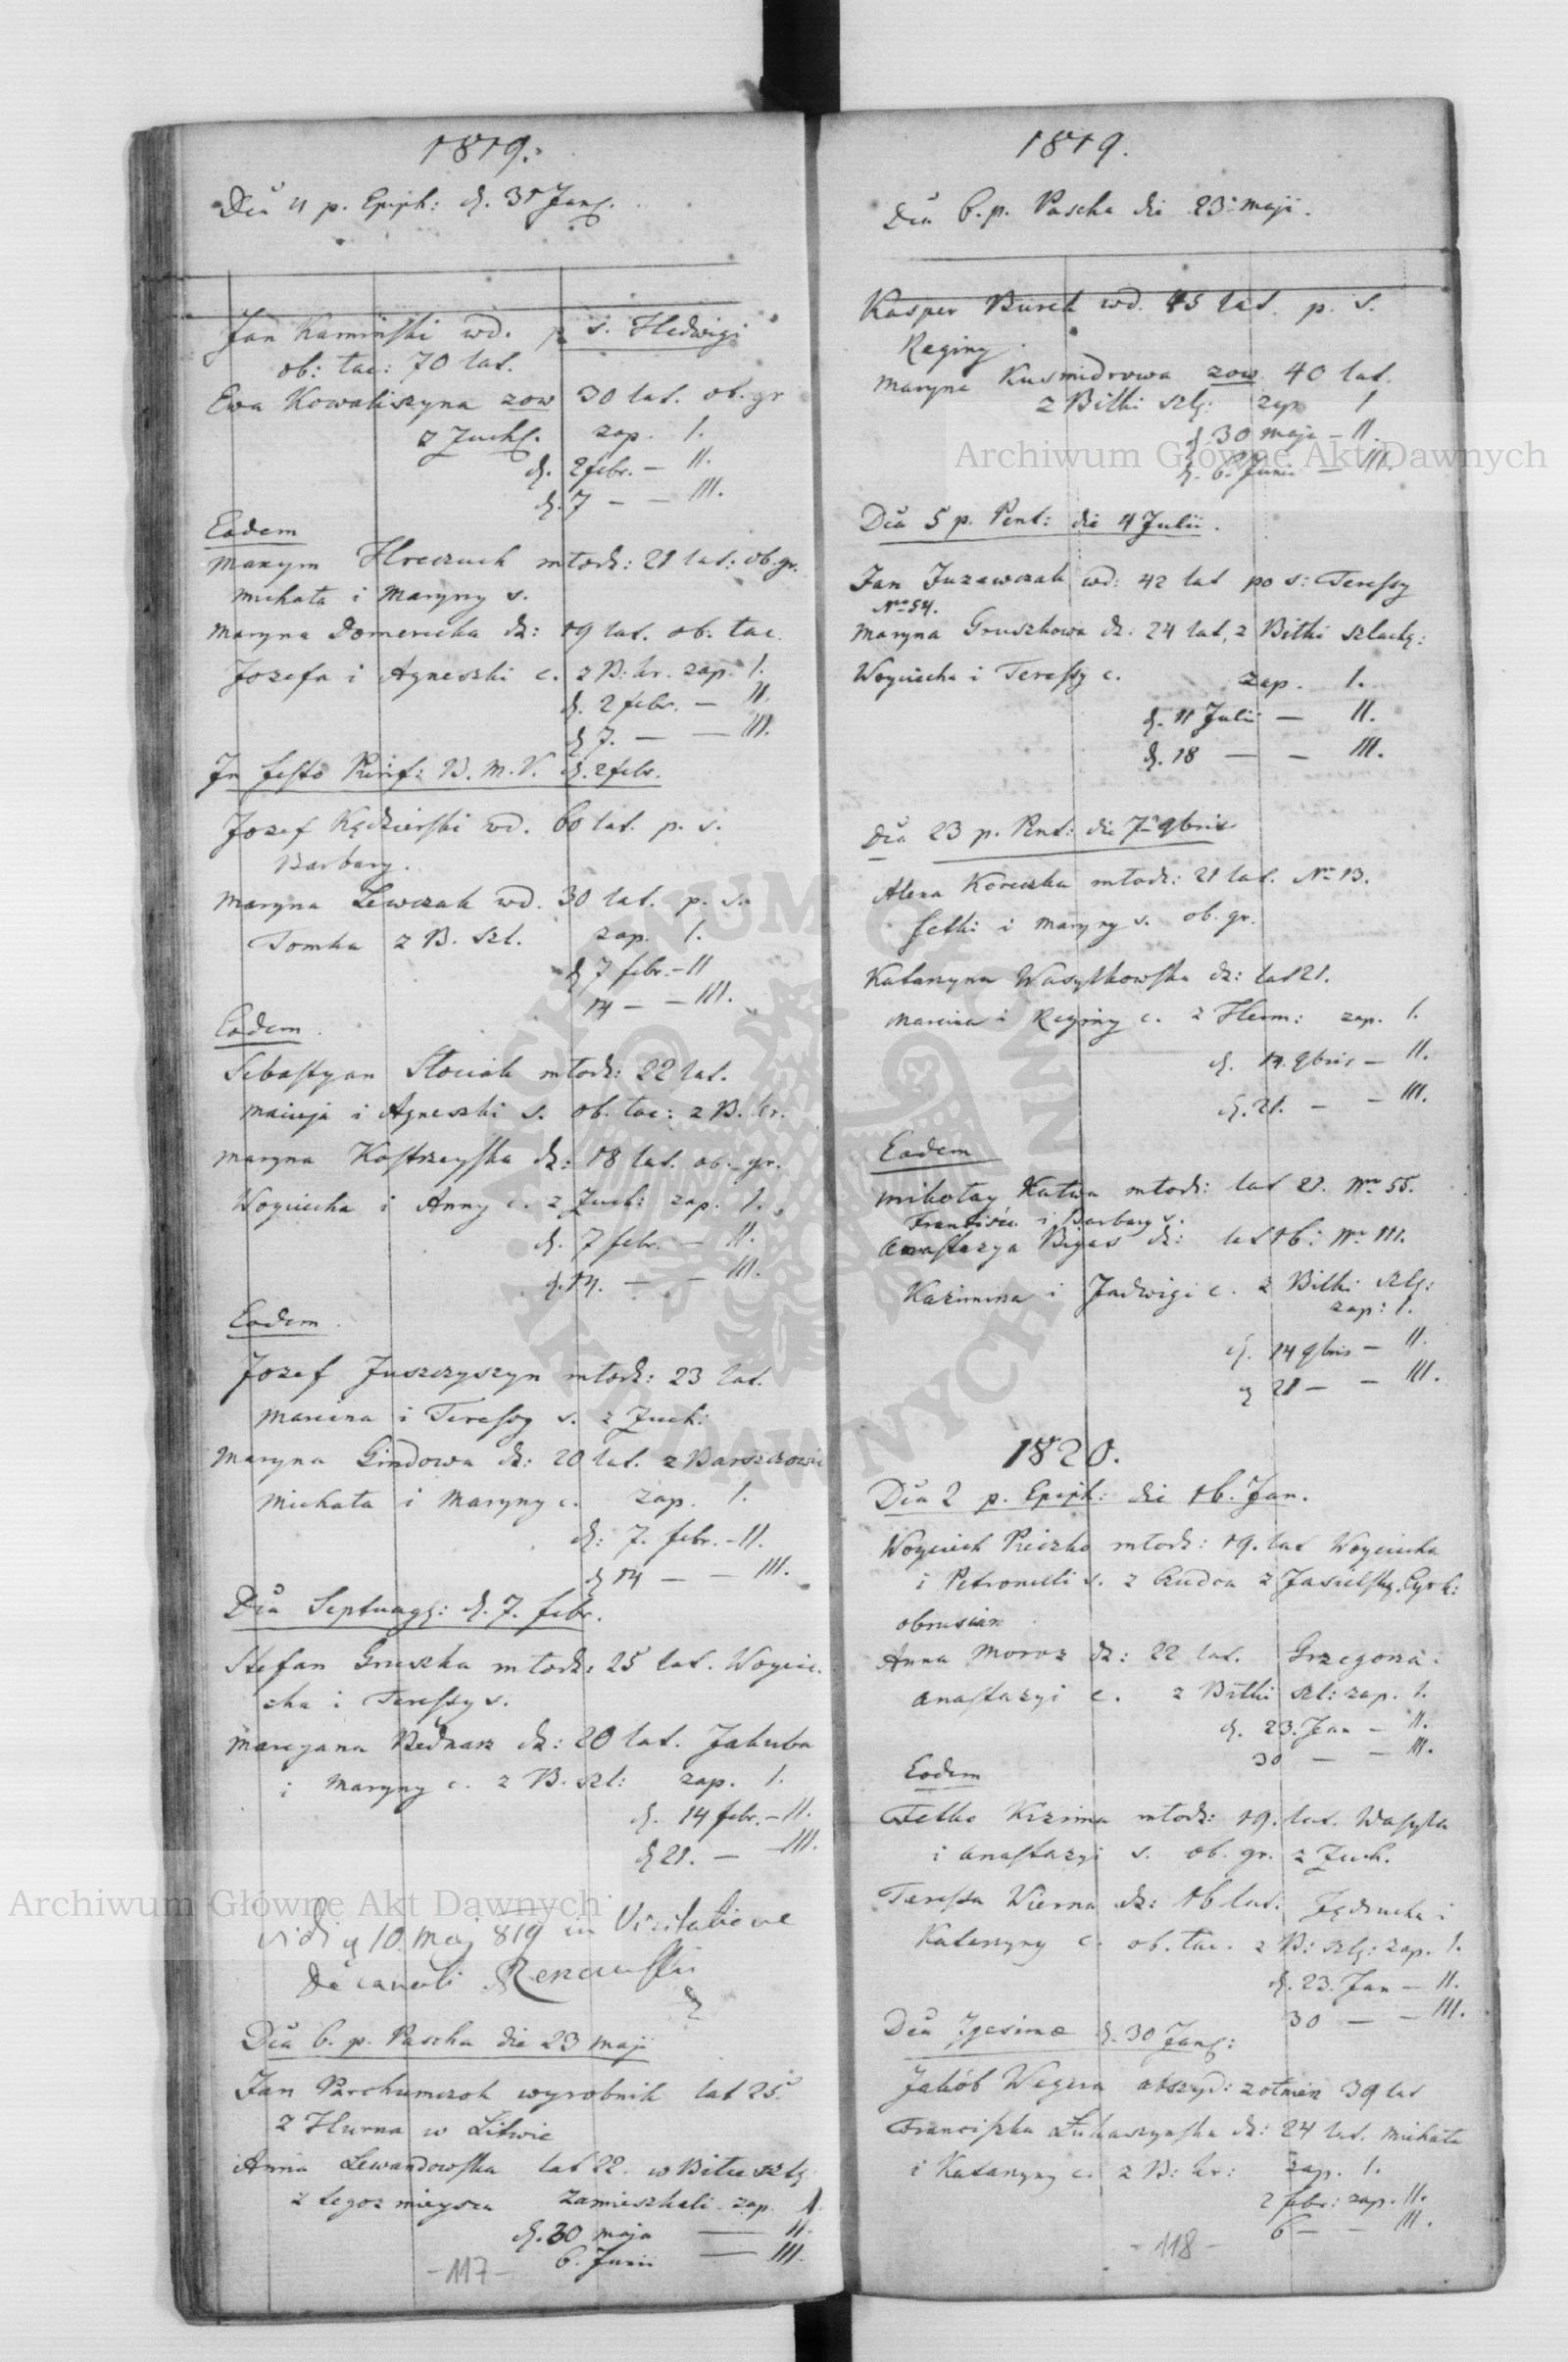 1819.
Dca 4 p. Epiph: d. 31 Jan.
Jan Kaminski wd. p. s. Hedwigi
ob: lac: 70 lat.
Ewa Kowaliszyna zow 30 lat. ob. gr
z Zuch. zap. I.
d. 2 febr. — II.
d. 7 — — III.
Eodem
Maxym Hreczuch młodz: 21 lat: ob. gr.
Michała i Maryny s.
Maryna Domerecka dz: 19 lat. ob. lac.
Jozefa i Agneszki c. z B: kr. zap. I.
d. 2 febr. — II.
d. 7. — — III.
In festo Purif: B. M. V. d. 2 febr.
Jozef Kędzierski wd. 60 lat. p. s.
Barbary.
Maryna Lewczak wd. 30 lat. p. s.
Tomka z B. szl. zap. I.
d. 7 febr. — II
14 — — III.
Eodem.
Sebastyan Słociak młodz: 22 lat.
Macieja i Agneszki s. ob. lac: z B. kr.
Maryna Kostrzeyska dz: 18 lat. ob. gr.
Woyciecha i Anny c. z Zuch: zap. I.
d. 7 febr. — II.
d. 14. — — III.
Eodem.
Jozef Juszczyszyn młodz: 23 lat.
Marcina i Teressy s. z Zuch:
Maryna Gindowa dz: 20 lat. z Barszczowic
Michała i Maryny c. zap. I.
d: 7. febr. — II.
d 14 — — III.
Dca Septuag: d. 7. febr.
Stefan Gruszka młodz: 25 lat. Woycie-
cha i Teressy s.
Maryjana Bednarz dz: 20 lat. Jakuba
i Maryny c. z B. szl: zap. I.
d. 14 febr. — II.
d 21. — — III.
Vidi d 10 Maj 819 in Visitatione
Decanali
Dca 6. p. Pascha die 23 Maji
Jan Parchumczok wyrobnik lat 25.
z Hurna w Litwie
Anna Lewandowska lat 22. w Bilce szlg
z tegoz mieysca zamieszkali zap. I.
d. 30 Maja — II.
6. Junii — III.
-117-
1819.
Dca 6. p. Pascha die 23: Maji.
Kasper Burek wd. 45 lat. p. s.
Reginy.
Maryna Kusmidrowa zow. 40 lat.
z Bilki szlg: zap I
d 30 Maja — II.
d. 6. Junii — III.
Dca 5 p. Pent: die 4 Julii.
Jan Juzawczak wd: 42 lat po s: Teressy
No 54.
Maryna Gruszkowa dz: 24 lat, z Bilki szlachg:
Woyciecha i Teressy c. zap. I.
d. 11 Julii — II.
d. 18 — — III.
Dca 23 p. Pent: die 7 9bris
Alexa Koreczka młodz: 21 lat. No 13.
Fetki i Maryny s. ob. gr.
Katarzyna Wasylkowska dz: lat 21.
Marcina i Reginy c. z Herm: zap. I.
d. 14. 9bris — II.
d. 21. — — III.
Eodem
Mikołay Kutwa młodz: lat 21. No 55.
i Barbary s.
Anastazya Bigas dz: lat 16: No 111.
Kazimirza i Jadwigi c. z Bilki szlg:
zap: I.
d. 14 9bris — II.
d 21 — — III.
1820.
Dca 2 p. Epiph: die 16. Jan.
Woyciech Pieczko młodz: 19. lat Woyciecha
i Petronelli s. z Czudca z Jasielsk. Cyrk:
Anna Moroz dz: 22 lat. Grzegorza i
Anastazyi c. z Bilki szl: zap. I.
d. 23. Jan — II.
30 — — III.
Eodem
Fetko Krzima młodz: 19. lat. Wasyla
i Anastazyi s. ob. gr. z Zuch.
Teressa Wierna dz: 16 lat. Jędrucha i
Katarzyny c. ob. lac. z B: szlg: zap. I.
d. 23. Jan — II.
30 — — III.
Dca 7gesima d. 30 Jan:
Jakób Wegera abszyd: zołnierz 39 lat
Franciszka Łukaszyńska dz: 24 lat. Michała
i Katarzyny c. z B: kr: zap. I.
2 febr: zap. II.
6 — — III.
-118-
Archiwum Główne Akt Dawnych
Archiwum Główne Akt Dawnych